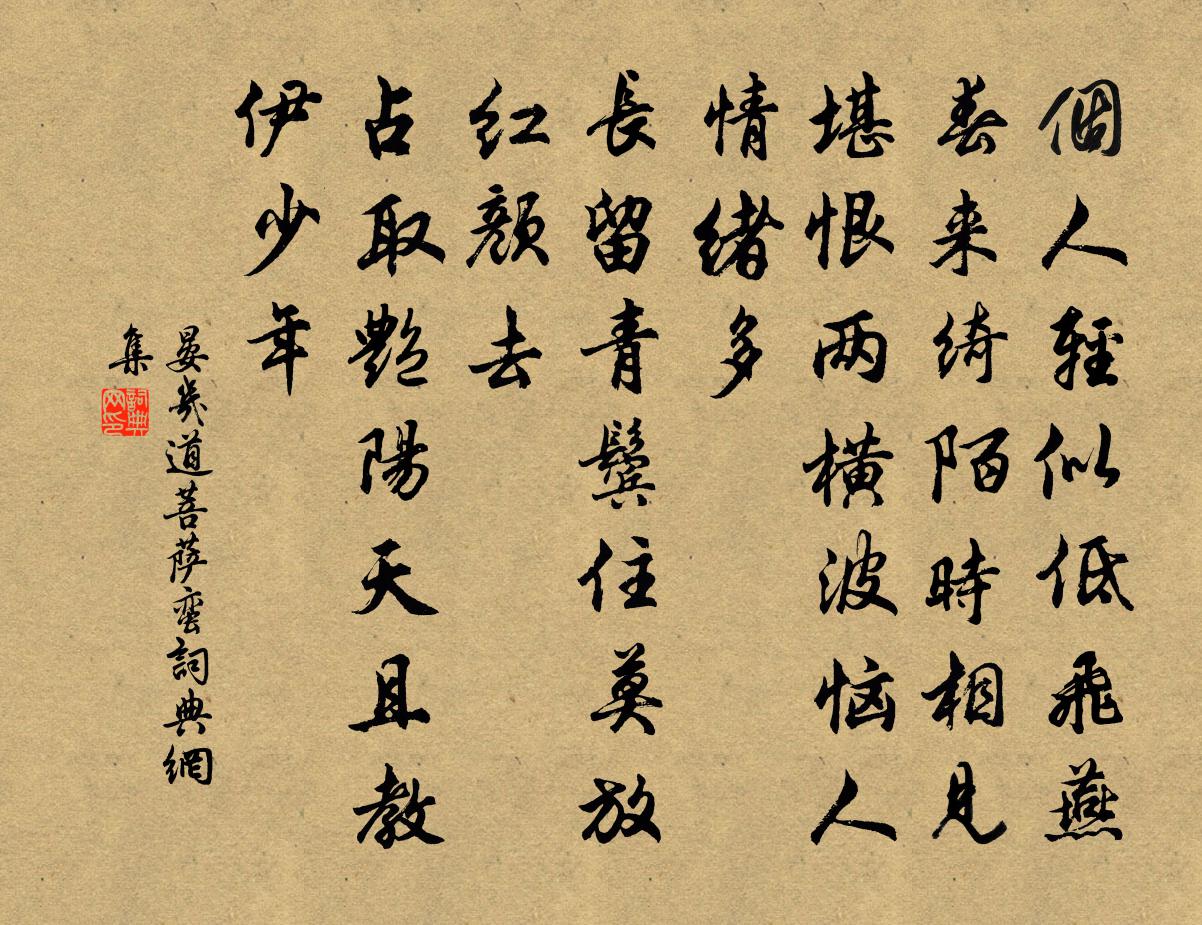 個人輕似低飛燕
春来綺陌時相見
堪恨两横波恼人
情緒多
長留青鬓住莫放
红顔去
占取艷陽天且教
伊少年
晏幾道菩萨蛮詞典網
集
詞典
网印